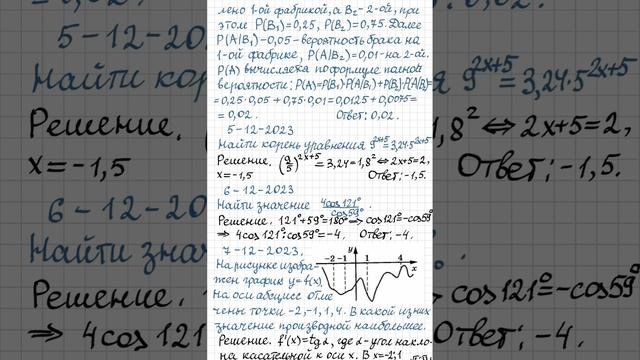 лено 1-ой фабрикой, а B₂ - 2-ой, при
этом P(B₁)=0,25, P(B₂)=0,75. Далее
P(A|B₁)-0,05 - вероятность брака на
1-ой фабрике, P(A|B₂)=0,01- на 2-ой.
P(A) вычисляется по формуле полной
вероятности: P(A)=P(B₁)·P(A|B₁)+P(B₂)·P(A|B₂)=
=0,25·0,05+0,75·0,01=0,0125+0,0075=
=0,02. Ответ: 0,02.
5-12-2023
Найти корень уравнения 9^(2x+5)=3,24·5^(2x+5)
Решение. (9/5)^(2x+5)=3,24=1,8² ⇔ 2x+5=2,
x=-1,5 Ответ: -1,5.
6-12-2023
Найти значение 4cos121°/cos59°
Решение. 121°+59°=180° ⇒ cos121°=-cos59°
⇒ 4cos121°:cos59°=-4. Ответ: -4.
7-12-2023.
На рисунке изобра-
жен график y=f(x).
На оси абсцисс отме
чены точки -2,-1,1,4. В какой из них
значение производной наибольшее.
Решение. f'(x)=tgα, где α-угол накло-
на касательной к оси x. В x=-2;1
y
-2 -1 1 4 x
5-12-2023
Найти корень
9^(2x+5)=3,24·5^(2x+5)
Решение.
1,8² ⇔ 2x+5=2,
x=-1,5
Ответ: -1,5.
6-12-2023
Найти знач
Решение.
cos121°=-cos59°
⇒ 4cos
Ответ: -4.